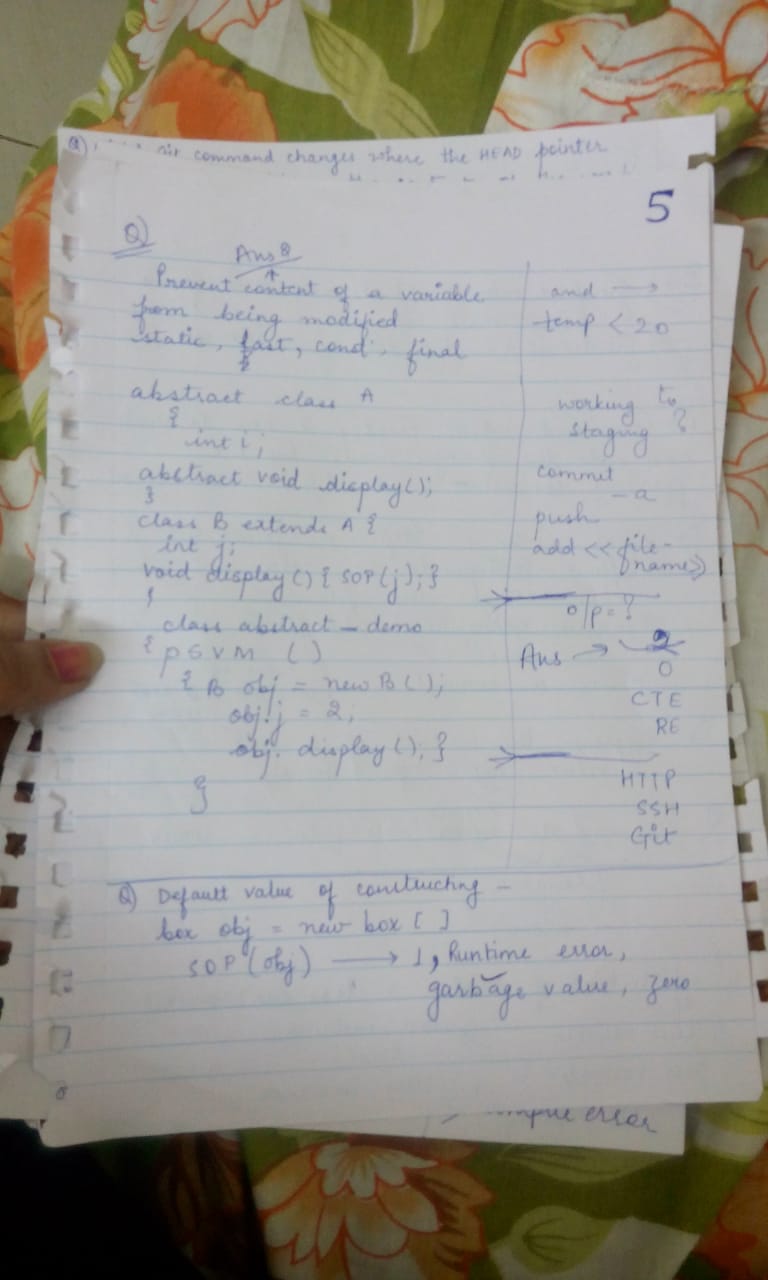 Q) git command changes where the HEAD pointer
5
Q)
Ans 8
Prevent content of a variable
from being modified
static, fast, cond, final
abstract class A
{
int i;
abstract void display();
}
class B extends A {
int j;
void display() { SOP(j); }
}
class abstract_demo
{ PSVM ()
{ B obj = new B();
obj.j = 2;
obj. display(); }
}
and →
temp < 20
working to
staging ?
commit
- a
push
add << file-
name>>
o/p = ?
Ans → 2
0
CTE
RE
HTTP
SSH
Git
Q) Default value of constructing -
box obj = new box [ ]
SOP (obj) → 1, Runtime error,
garbage value, zero
error